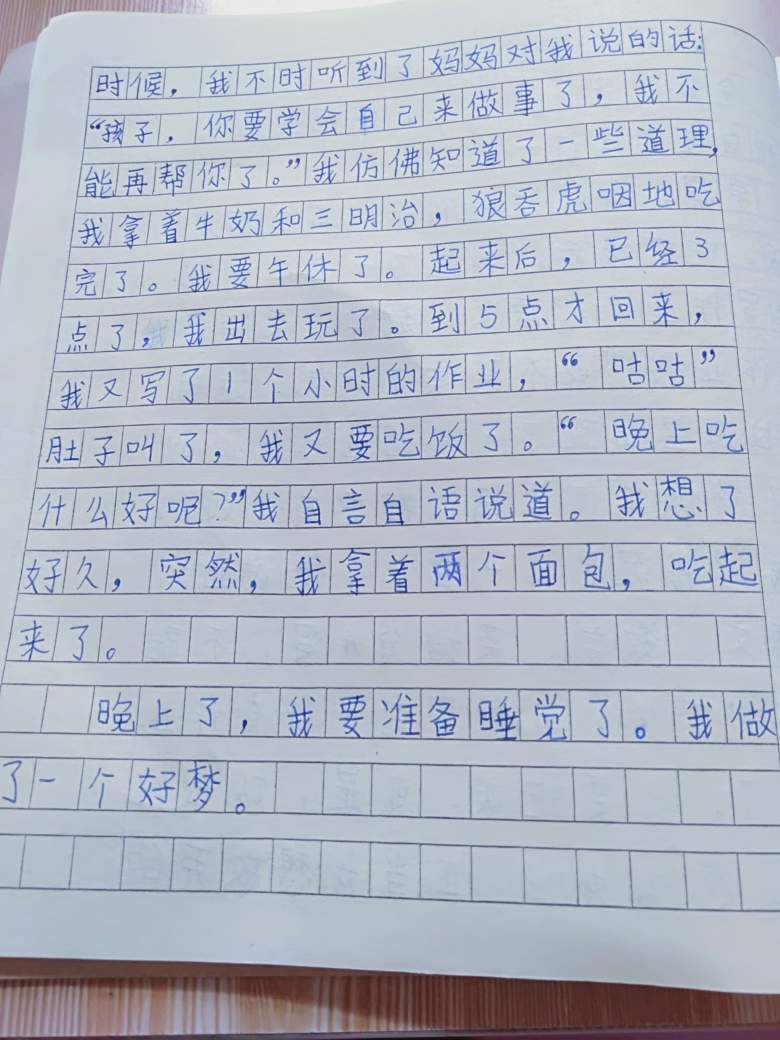 时候，我不时听到了妈妈对我说的话：
“孩子，你要学会自己来做事了，我不
能再帮你了。”我仿佛知道了一些道理，
我拿着牛奶和三明治，狼吞虎咽地吃
完了。我要午休了。起来后，已经3
点了，我出去玩了。到5点才回来，
我又写了1个小时的作业，“咕咕”
肚子叫了，我又要吃饭了。“晚上吃
什么好呢？”我自言自语说道。我想了
好久，突然，我拿着两个面包，吃起
来了。
晚上了，我要准备睡觉了。我做
了一个好梦。